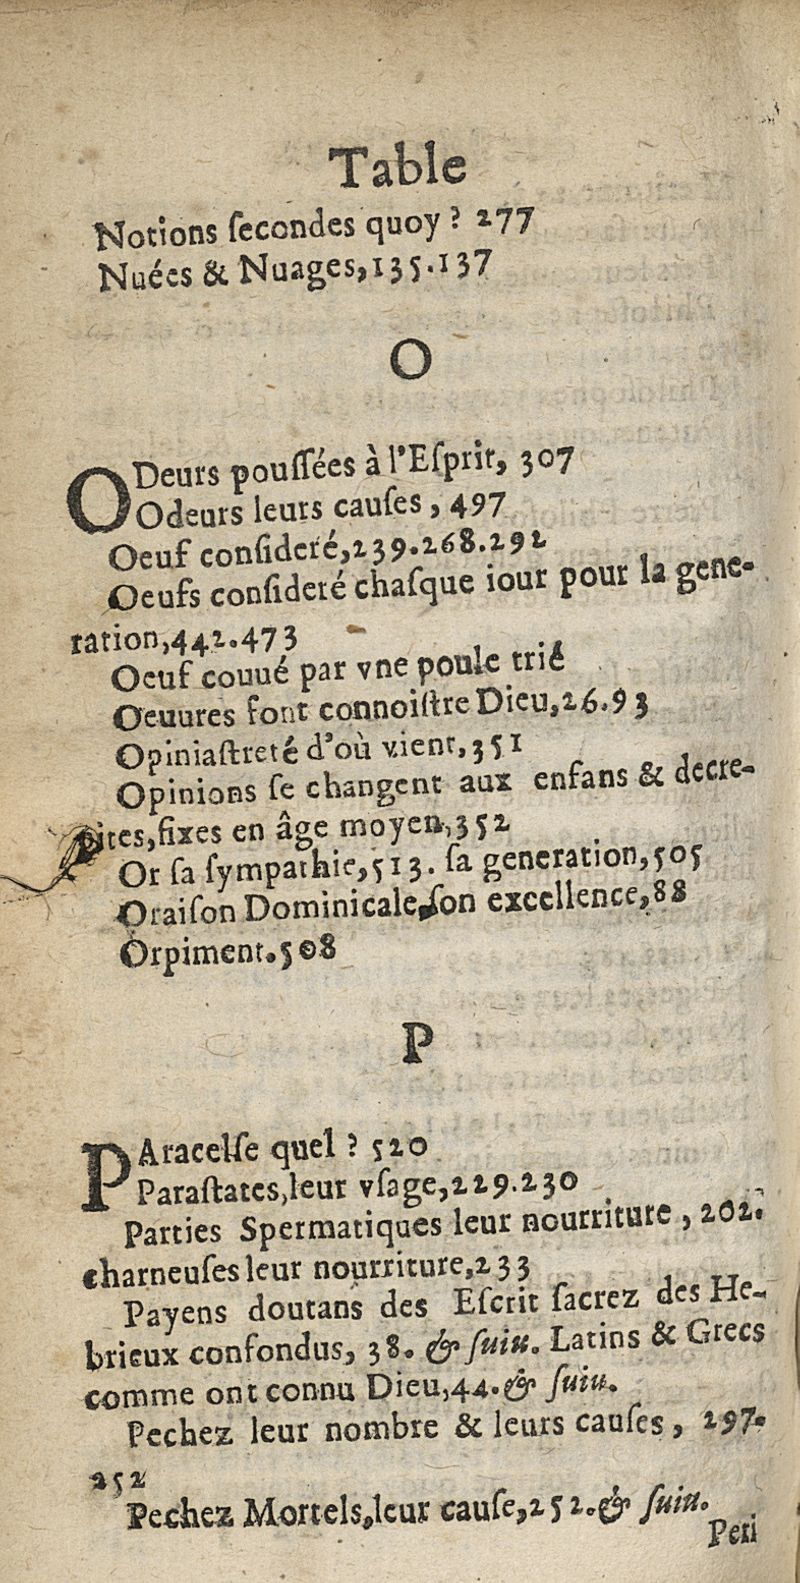 Table
Notions ſecondes quoy ? 277
Nuées & Nuages,135.137
O
ODeurs pouſſées à l'Eſprit, 307
Odeurs leurs cauſes , 497
Oeuf conſideré,239.268.292
Oeufs conſideré chaſque iour pour la gene-
ration,442.473
Oeuf couué par vne poule trié
Oeuures font connoiſtre Dieu,26.93
Opiniaſtreté d'où vient,351
Opinions ſe changent aux enfans & decre-
pites,fixes en âge moyen,352
Or ſa ſympathie,513. ſa generation,505
Oraiſon Dominicale,ſon excellence,88
Orpiment.508
P
PAracelſe quel ? 520
Paraſtates,leur vſage,229.230
Parties Spermatiques leur nourriture , 202.
charneuſes leur nourriture,233
Payens doutans des Eſcrit ſacrez des He-
brieux confondus, 38. & ſuiu. Latins & Grecs
comme ont connu Dieu,44.& ſuiu.
Pechez leur nombre & leurs cauſes , 297.
252
Pechez Mortels,leur cauſe,252.& ſuiu.
Peri